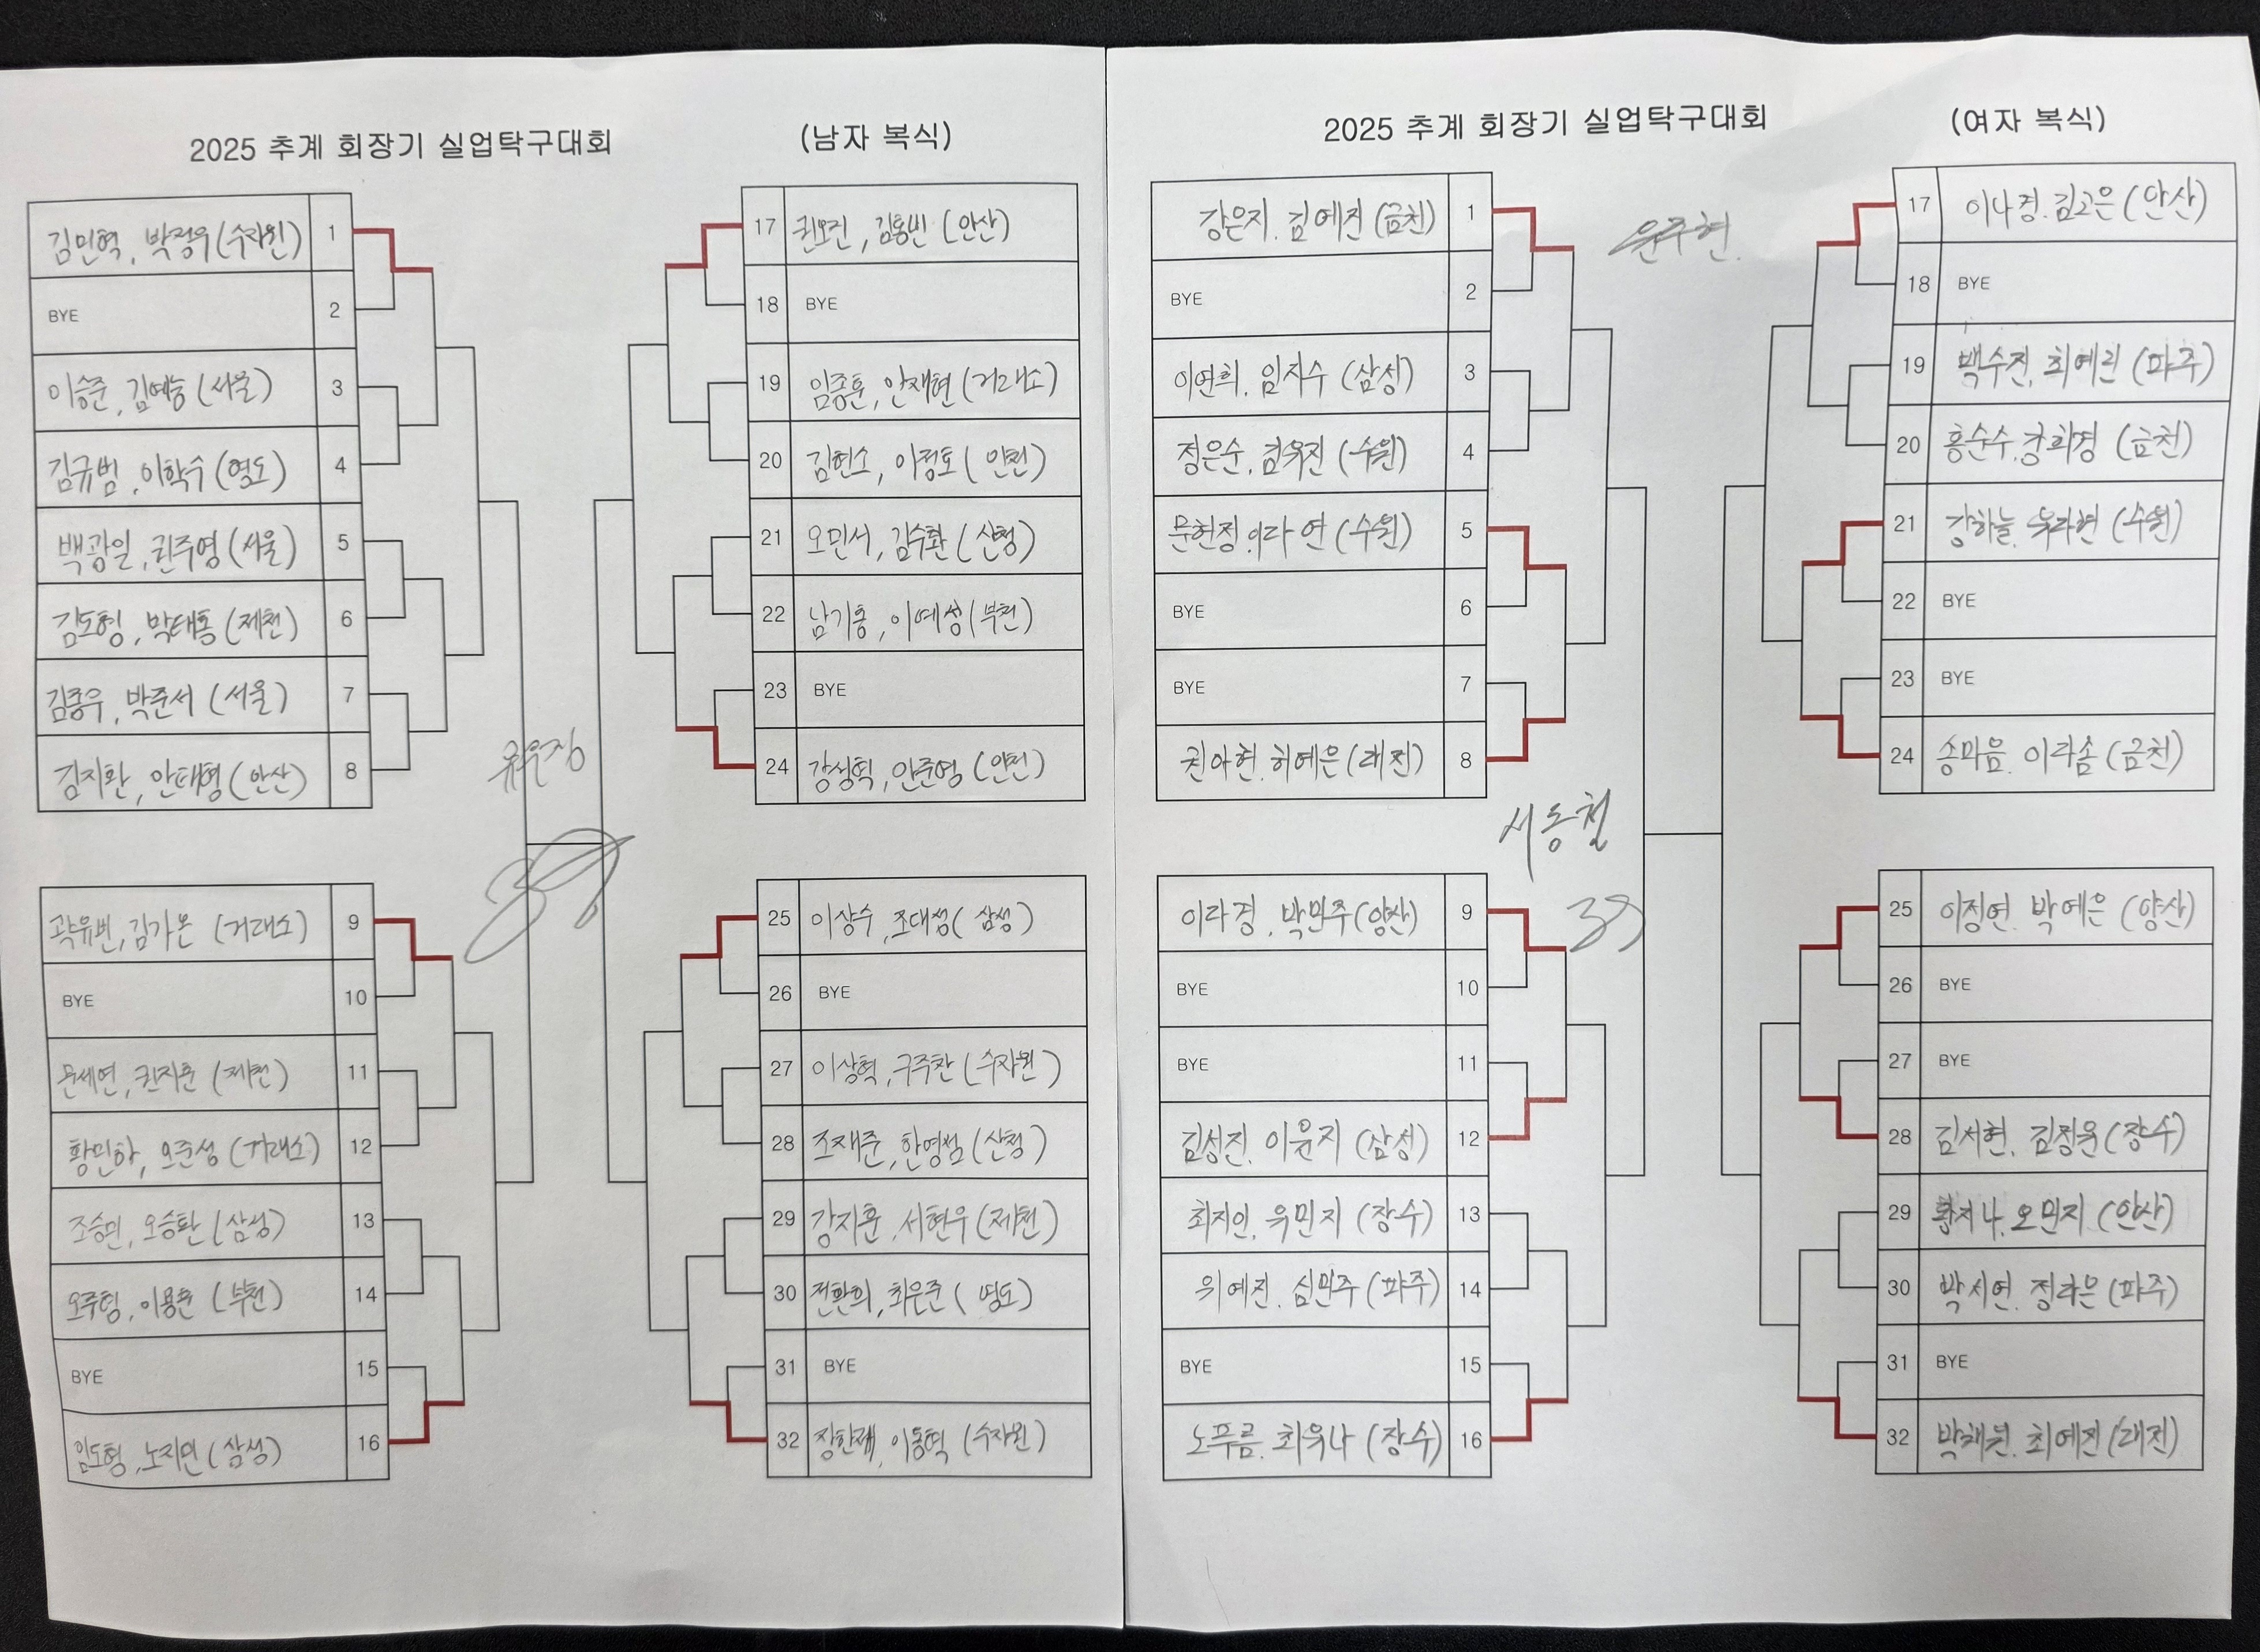 2025 추계 회장기 실업탁구대회 (남자 복식)
김민혁, 박정우 (수자원) 1
BYE 2
이승준, 김예능 (서울) 3
김규범, 이학수 (영도) 4
백광일, 권주영 (서울) 5
김도형, 박태홍 (제천) 6
김종우, 박준서 (서울) 7
김지환, 안태형 (안산) 8
곽유빈, 김가온 (거래소) 9
BYE 10
문세연, 권지훈 (제천) 11
황민하, 오준성 (거래소) 12
조승민, 오승환 (삼성) 13
오주형, 이용준 (부천) 14
BYE 15
임도형, 노지민 (삼성) 16
17 권오진, 김홍빈 (안산)
18 BYE
19 임종훈, 안재현 (거래소)
20 김현소, 이정호 (인천)
21 오민서, 김수환 (산청)
22 남기홍, 이예성 (부천)
23 BYE
24 강성혁, 안준영 (인천)
25 이상수, 조대성 (삼성)
26 BYE
27 이상혁, 구주찬 (수자원)
28 조재준, 한영섬 (산청)
29 강지훈, 서현우 (제천)
30 전환희, 최은준 (영도)
31 BYE
32 장한재, 이동혁 (수자원)
2025 추계 회장기 실업탁구대회 (여자 복식)
강은지, 김예진 (금천) 1
BYE 2
이연희, 임지수 (삼성) 3
정은순, 김유진 (수원) 4
문현정, 이다연 (수원) 5
BYE 6
BYE 7
권아현, 허예은 (대전) 8
서동철
이라경, 박민주 (양산) 9
BYE 10
BYE 11
김성진, 이윤지 (삼성) 12
최지인, 유민지 (장수) 13
위예진, 심민주 (파주) 14
BYE 15
노푸름, 최유나 (장수) 16
윤주현
17 이나경, 김고은 (안산)
18 BYE
19 백수진, 최예린 (파주)
20 홍순수, 강희경 (금천)
21 강하늘, 옥라현 (수원)
22 BYE
23 BYE
24 송마음, 이다솜 (금천)
25 이정연, 박예은 (양산)
26 BYE
27 BYE
28 김서현, 김정윤 (장수)
29 황지나, 오민지 (안산)
30 박시연, 정다은 (파주)
31 BYE
32 박채원, 최예진 (대전)